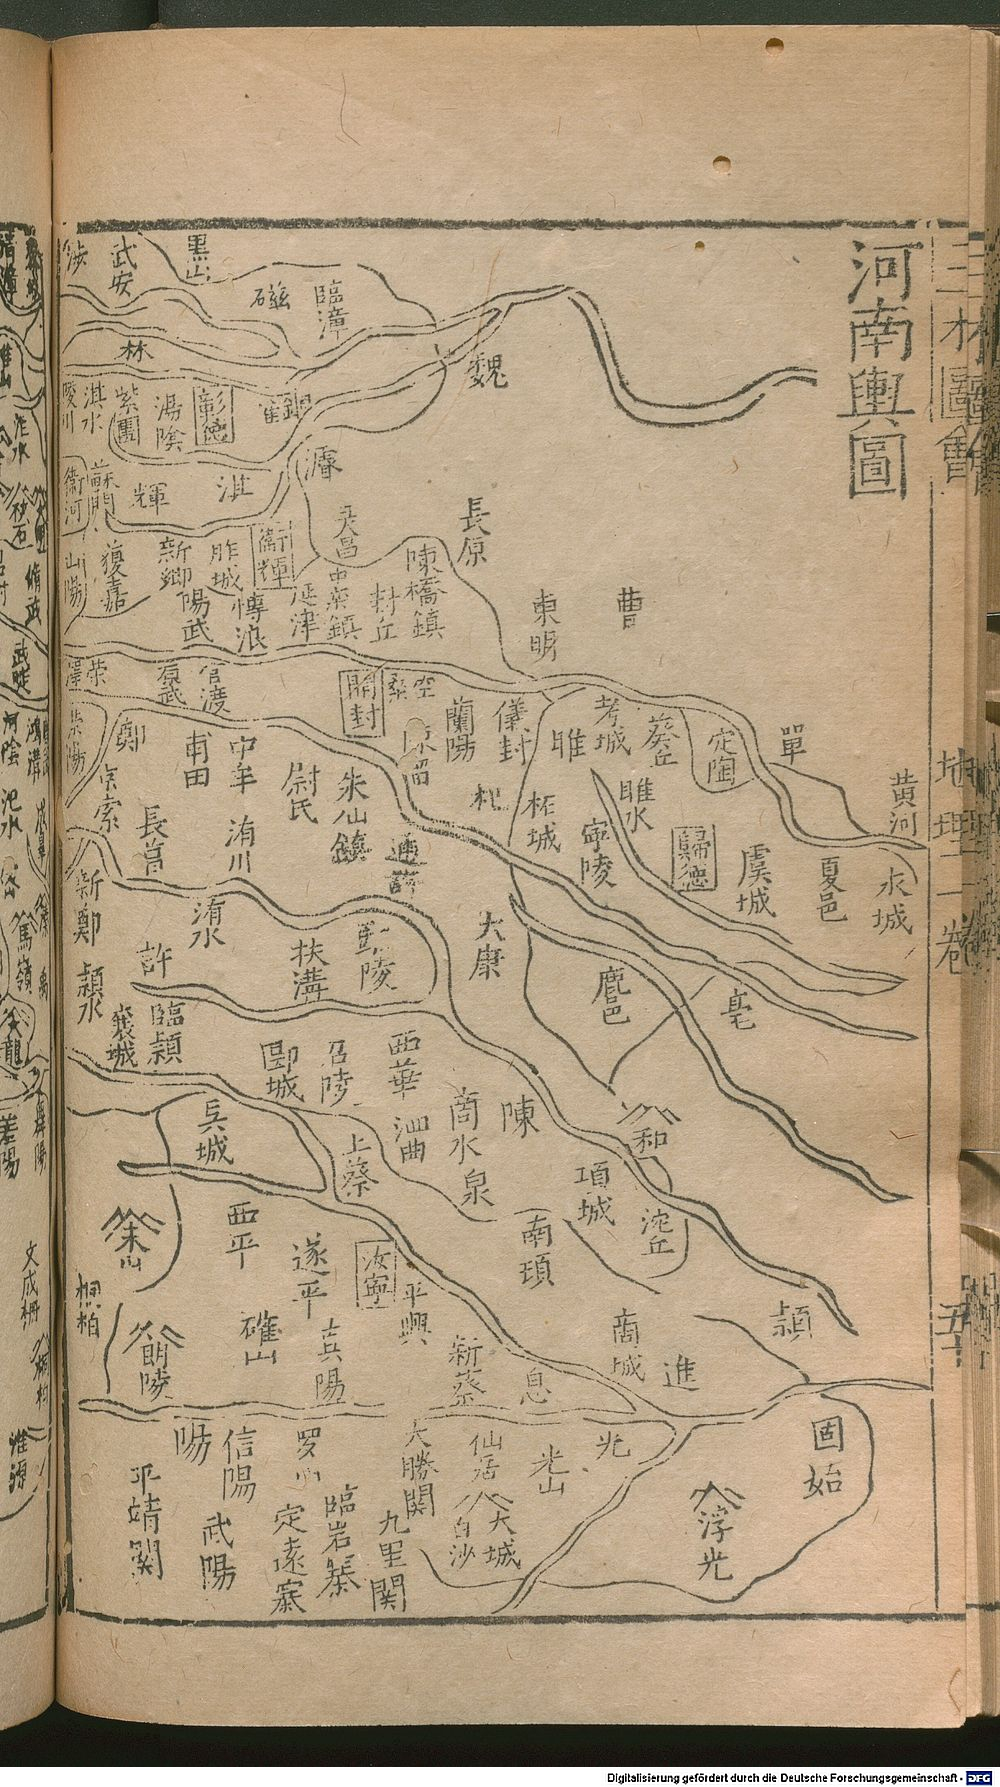 河南輿圖
三才圖會
地理二卷
五十
黃河
永城
夏邑
單
虞城
歸德
定陶
葵丘
考城
曹
睢水
寧陵
睢
柘城
東明
儀封
杞
蘭陽
長原
魏
陳橋鎮
封丘
空桑
開封
陳留
通許
朱仙鎮
尉氏
延津
衛輝
胙城
新鄉
博浪
陽武
官渡
原武
中牟
甫田
洧川
長葛
鄭
京索
滎陽
滎澤
新鄭
洧水
許
潁水
襄城
臨潁
扶溝
鄢陵
大康
鹿邑
亳
郾城
召陵
西華
商水
陳
項城
和
沱丘
南頓
上蔡
吳城
西平
遂平
汝寧
平輿
新蔡
息
商城
潁
固始
浮光
光
光山
仙居
大城
白沙
大勝關
九里關
定遠寨
羅山
信陽
武陽
平靖關
朗陵
桐柏
確山
臨漳
磁
黑山
武安
涉
林
彰德
湯陰
紫團
淇水
陵川
濬
淇
輝
蘇門
衛河
獲嘉
山陽
Digitalisierung gefördert durch die Deutsche Forschungsgemeinschaft - DFG